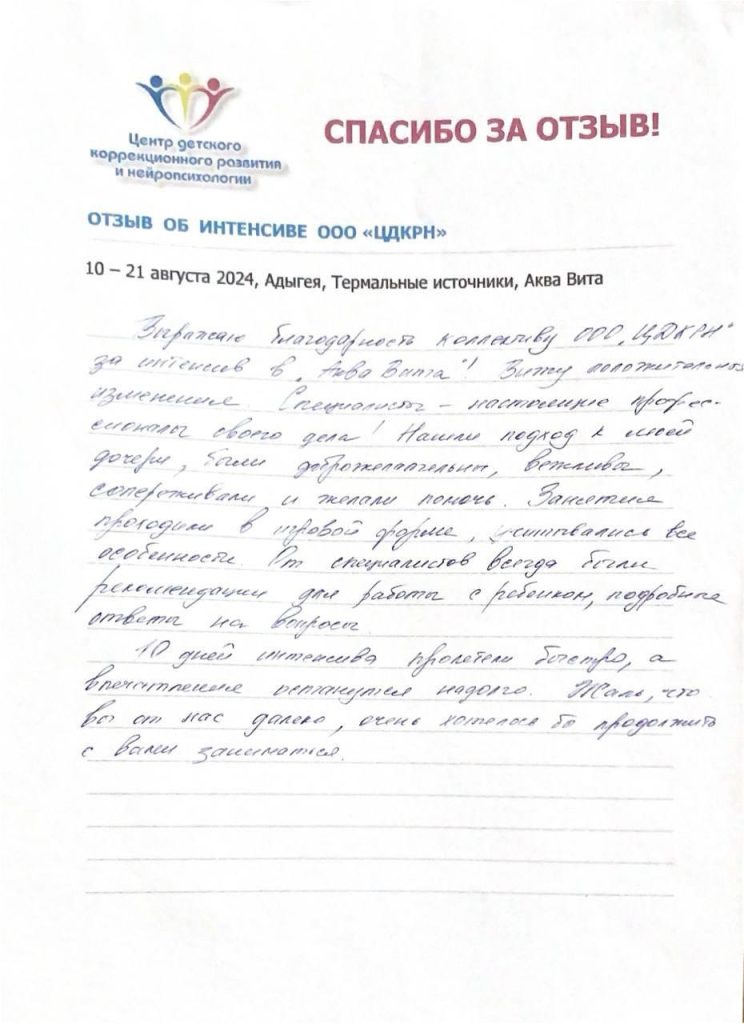 Центр детского
коррекционного развития
и нейропсихологии
СПАСИБО ЗА ОТЗЫВ!
ОТЗЫВ ОБ ИНТЕНСИВЕ ООО «ЦДКРН»
10 – 21 августа 2024, Адыгея, Термальные источники, Аква Вита
Выражаю благодарность коллективу ООО „ЦДКРН"
за интенсив в „Аква Вита"! Вижу положительные
изменения. Специалисты – настоящие профес-
сионалы своего дела! Нашли подход к моей
дочери, были доброжелательны, вежливы,
сопереживали и желали помочь. Занятия
проходили в игровой форме, учитывались все
особенности. От специалистов всегда были
рекомендации для работы с ребенком, подробные
ответы на вопросы.
10 дней интенсива пролетели быстро, а
впечатления останутся надолго. Жаль, что
вы от нас далеко, очень хотелось бы продолжить
с вами заниматься.